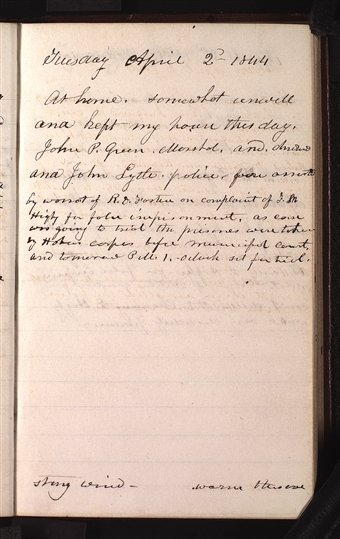 Tuesday April 2d 1844
At home. somewhat unwell
and kept my house this day.
John P. Green. Marshal, and. Andrew
and John Lytle. police. were arrested
by warrant of R. D. Foster on complaint of
Higby for false imprisonment, as case
was going to trial the prisoners were taken
by Habius corpus before municipal court
and tomorrow P.M. 1. o-clock set for trial.
strong wind — warm